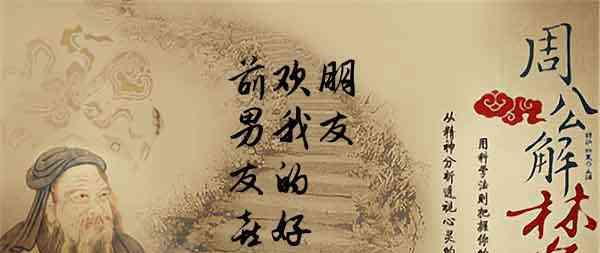 前男友喜
欢我的好
朋友
周公解
用科学法则把握你
从精神分析透视心灵的